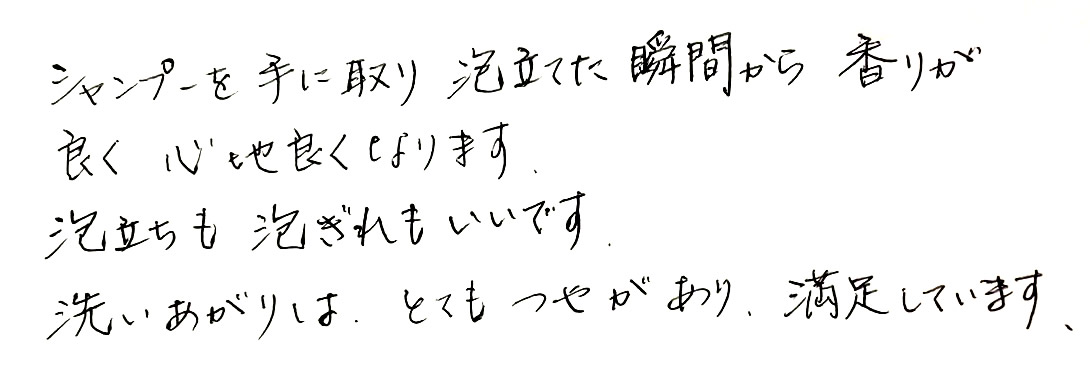 シャンプーを手に取り 泡立てた瞬間から 香りが
良く 心地良くなります.
泡立ちも 泡ぎれもいいです.
洗いあがりは、とてもつやがあり、満足しています、